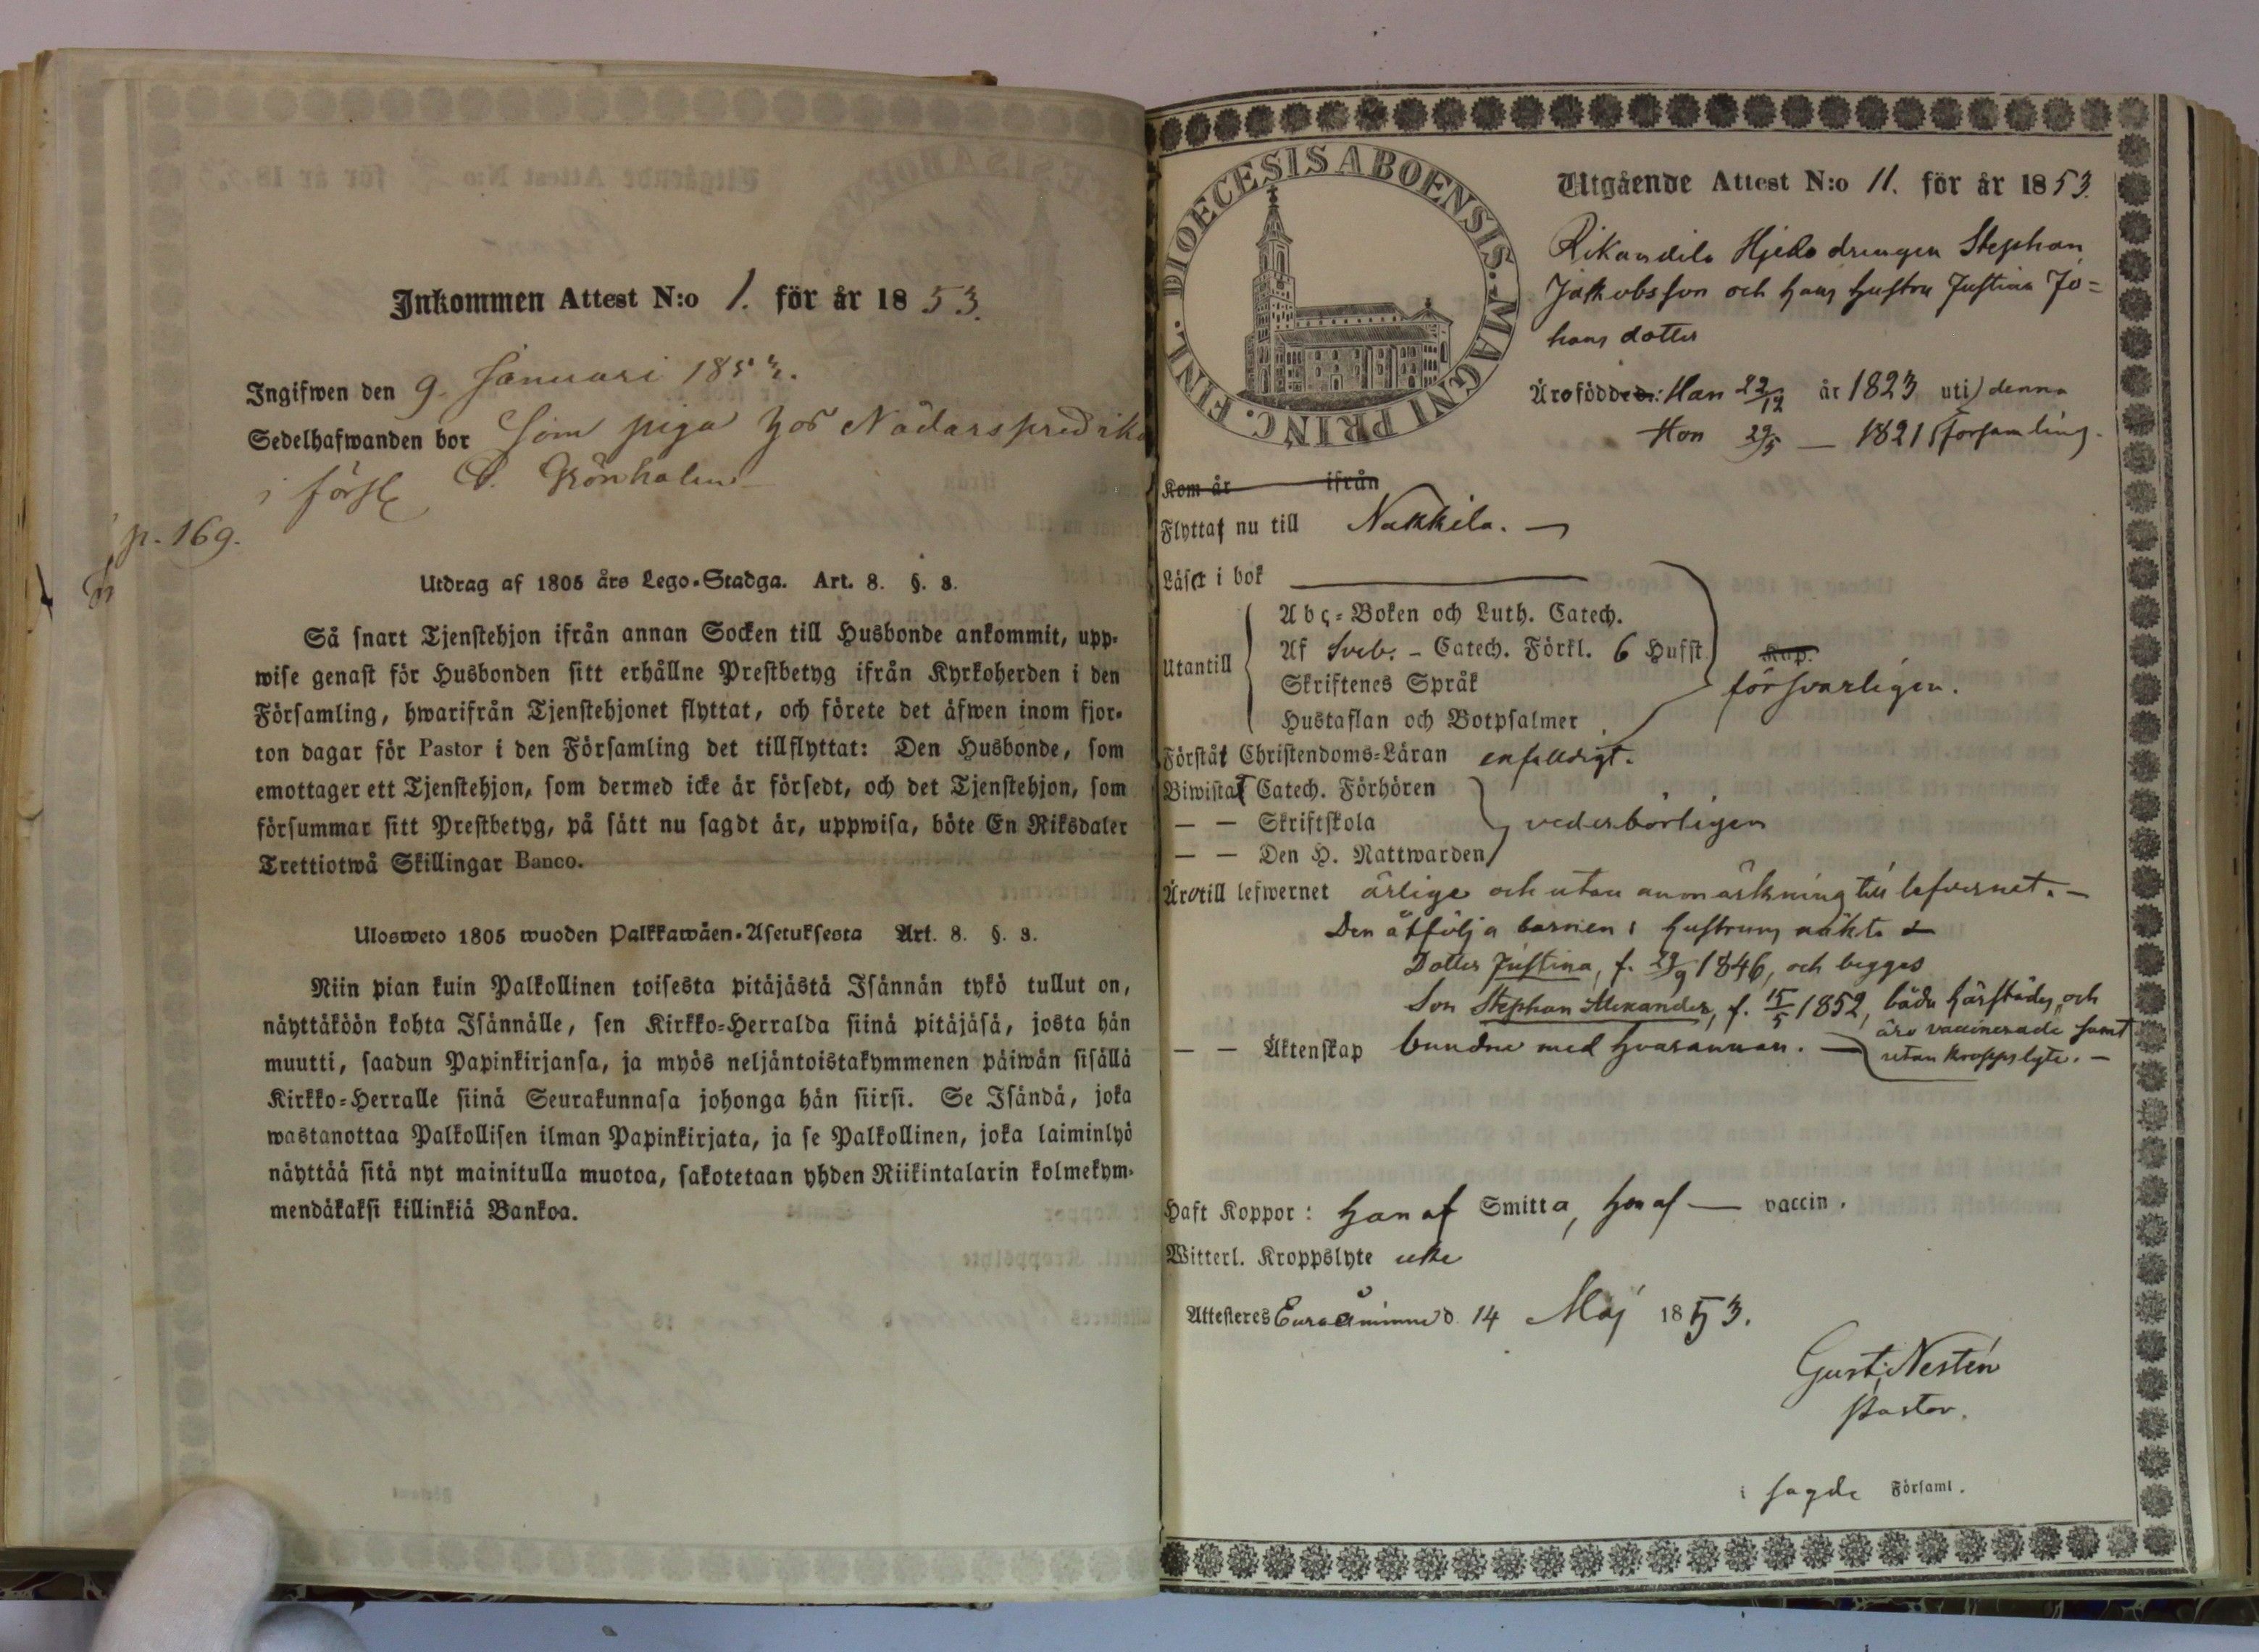 Inkommen Attest N:o 1. för år 1853.
Ingifwen den 9. Januari 1853.
Sedelhafwanden bor som piga hos Nådårspredik
i förs D. Grönholm
p. 169.
Utdrag af 1805 års Lego-Stadga. Art. 8. §. 8.
Så snart Tjenstehjon ifrån annan Socken till Husbonde ankommit, upp-
wise genast för Husbonden sitt erhållne Prestbetyg ifrån Kyrkoherden i den
Församling, hwarifrån Tjenstehjonet flyttat, och förete det äfwen inom fjor-
ton dagar för Pastor i den Församling det tillflyttat: Den Husbonde, som
emottager ett Tjenstehjon, som dermed icke är försedt, och det Tjenstehjon, som
försummar sitt Prestbetyg, på sätt nu sagdt är, uppwisa, böte En Riksdaler
Trettiotwå Skillingar Banco.
Ulosweto 1805 wuoden Palkkawäen-Asetuksesta Art. 8. §. 8.
Niin pian kuin Palkollinen toisesta pitäjästä Isännän tykö tullut on,
näyttäköön kohta Isännälle, sen Kirkko-Herralda siinä pitäjäsä, josta hän
muutti, saadun Papinkirjansa, ja myös neljäntoistakymmenen päiwän sisällä
Kirkko-Herralle siinä Seurakunnasa johonga hän siirsi. Se Isändä, joka
wastanottaa Palkollisen ilman Papinkirjata, ja se Palkollinen, joka laiminlyö
näyttää sitä nyt mainitulla muotoa, sakotetaan yhden Riikintalarin kolmekym-
mendäkaksi killinkiä Bankoa.
DIOECESIS ABOENSIS. MAGNI PRINC. FINL.
Utgående Attest N:o 11. för år 1853.
Rikandila Stephan
Jakobsson och hans hustru Justina Jo=
hans dotter
Äro född: Han 22/12 år 1823 uti denna
Hon 29/5 — 1821 församling.
Kom år ifrån
Flyttat nu till Nakkila. —
Läser i bok
Utantill
Abc-Boken och Luth. Catech.
Af Sveb. - Catech. Förkl. 6 Hufst Kap.
Skriftenes Språk försvarligen.
Hustaflan och Botpsalmer
Förstår Christendoms-Läran enfalldigt.
Biwistat Catech. Förhören
— — Skriftskola vederbörligen
— — Den H. Nattwarden
Äro till lefwernet ärlige och utan anmärkning till lefvernet. —
Den åtfölja barnen: hustruns oäkta
Dotter Justina, f. 29/9 1846, och begges
Son Stephan Alexander, f. 15/5 1852, båda härstädes, och
äro vaccinerade samt
— — Äktenskap bundne med hvarannan. — utan kroppslyte. —
Haft Koppor: han af Smitta, hon af — vaccin.
Witterl. Kroppslyte icke
Attesteres Euraåminne d. 14 Maj 1853.
Gust. Nestén
Pastor.
i sagde Församl.